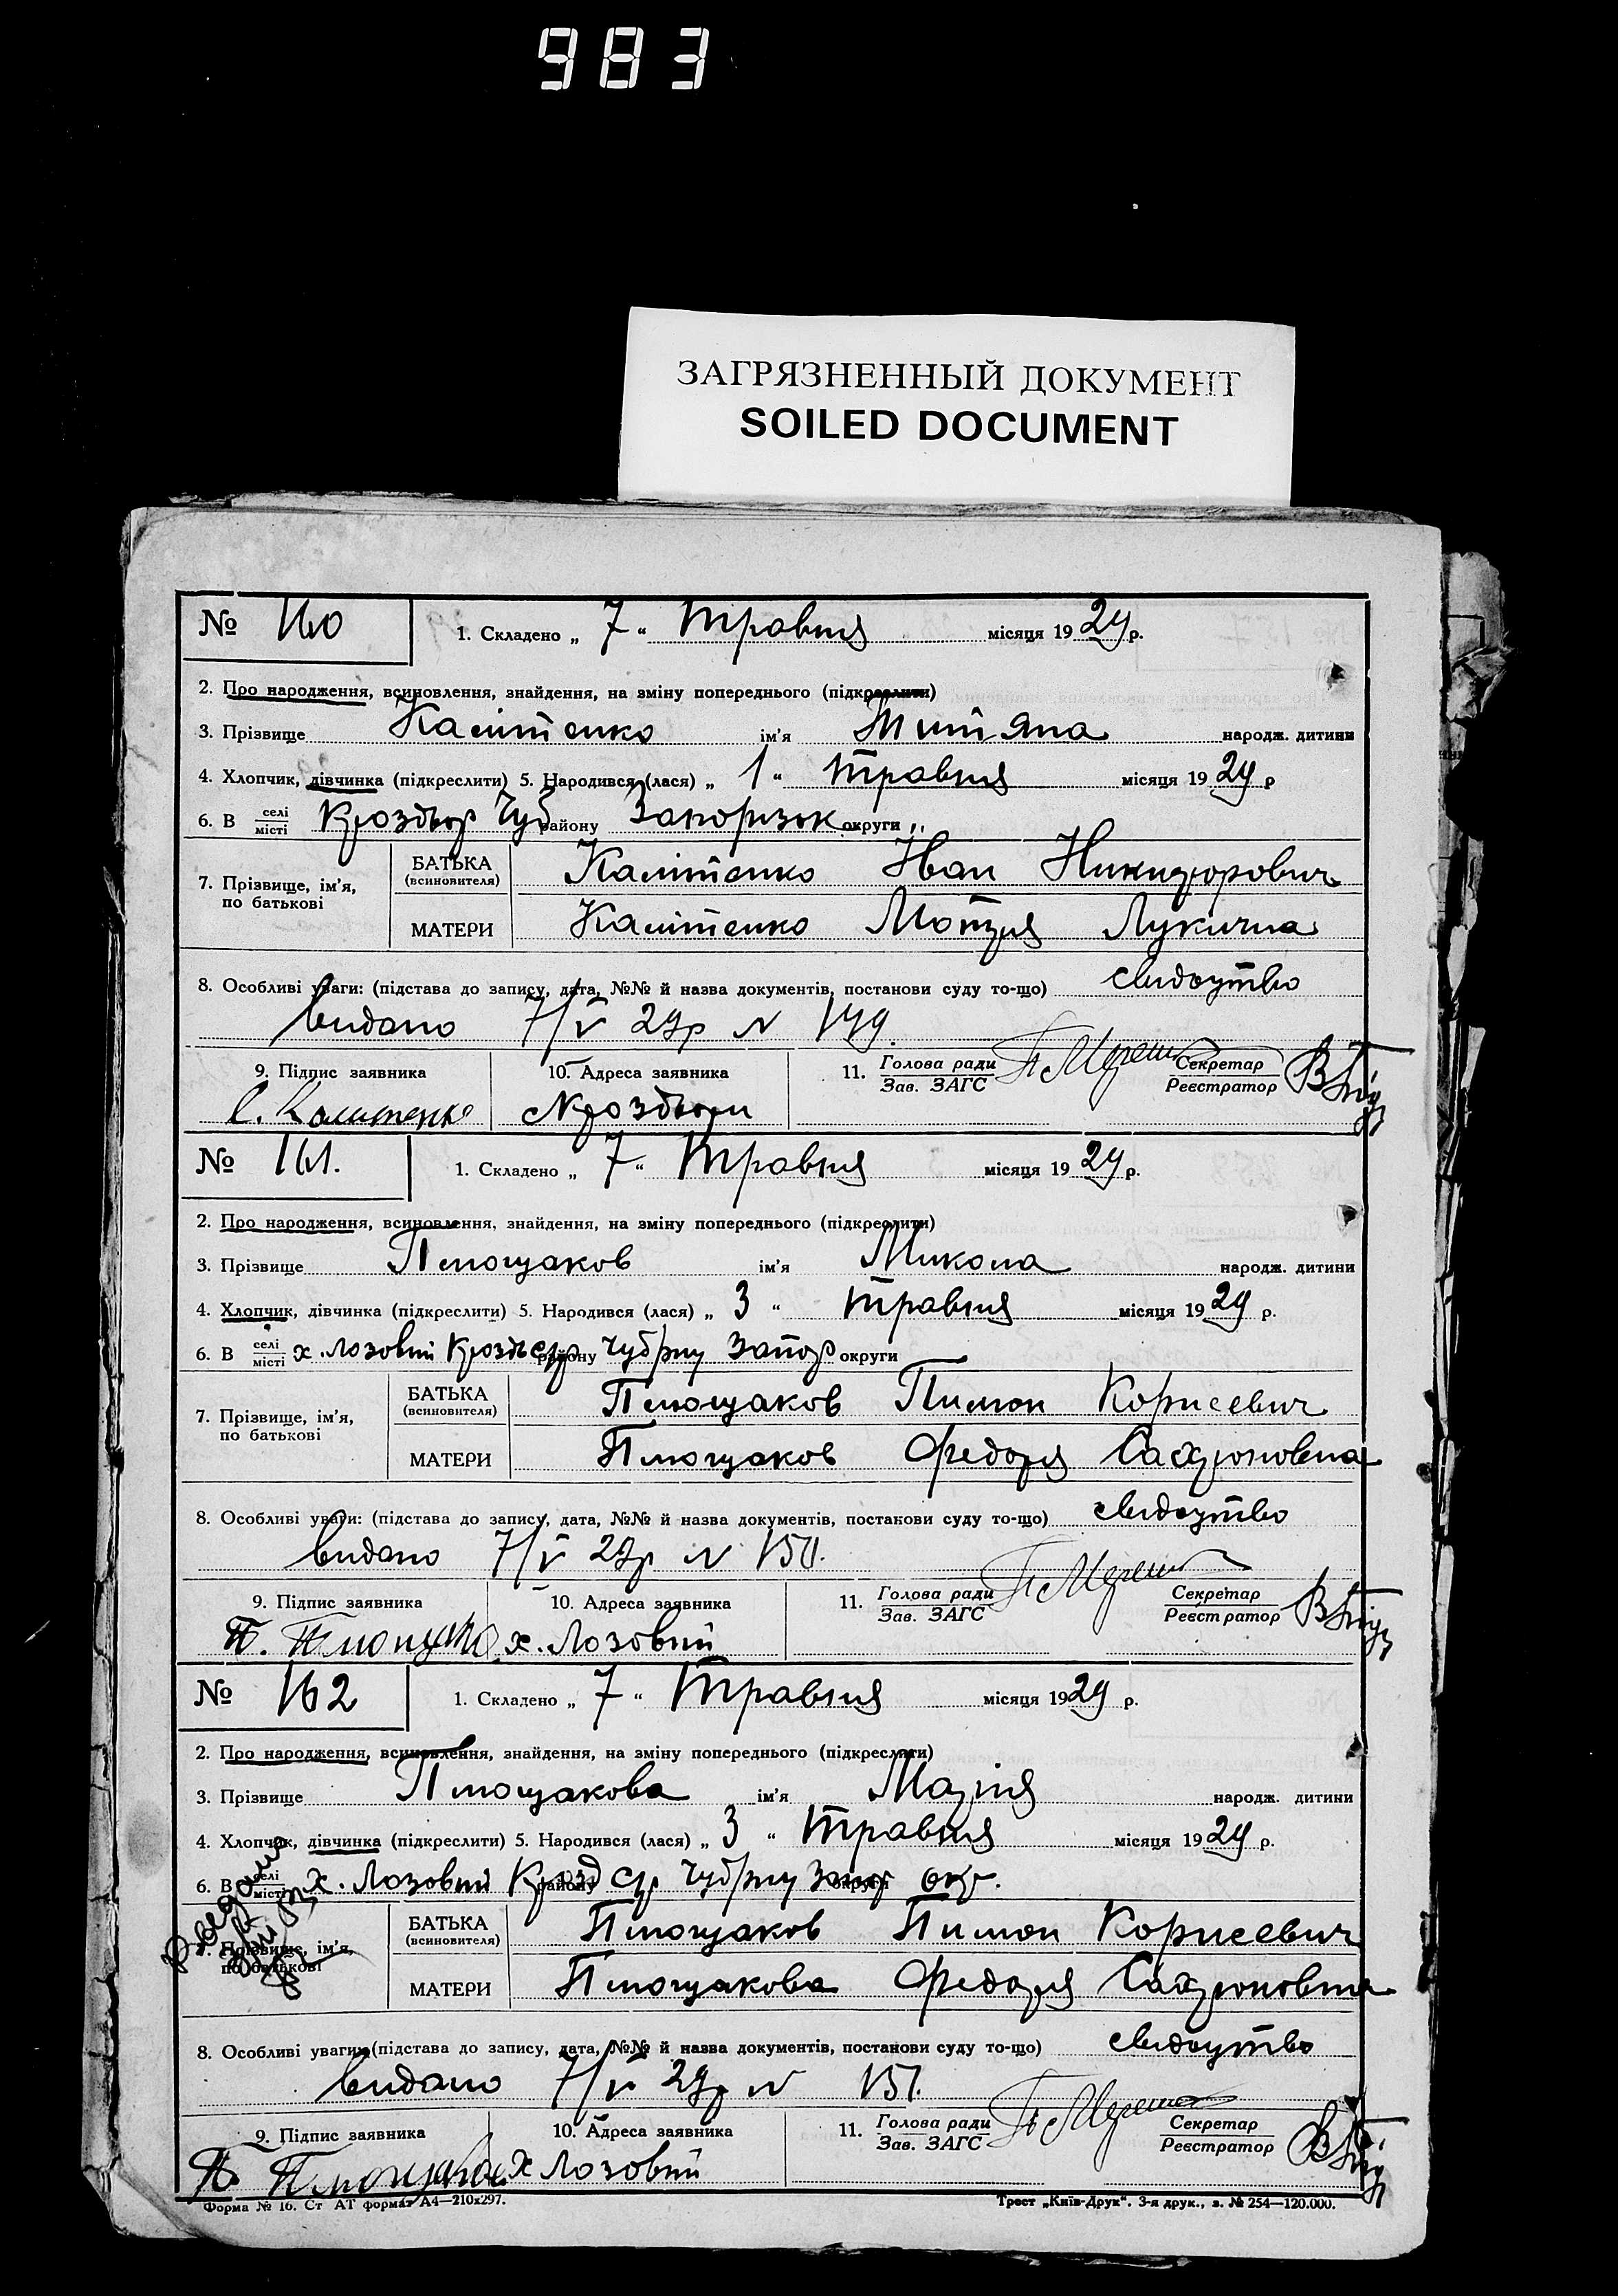 983
ЗАГРЯЗНЕННЫЙ ДОКУМЕНТ
SOILED DOCUMENT
№ 160 1. Складено „ 7 “ Травня місяця 1929 р.
2. Про народження, всиновлення, знайдення, на зміну попереднього (підкреслити)
3. Прізвище Калітенко ім'я народж. дитини
4. Хлопчик, дівчинка (підкреслити) 5. Народився (лася) „ 1 “ травня місяця 1929 р
6. В селі місті Чуб району округи
7. Прізвище, ім'я, по батькові
БАТЬКА (всиновителя) Калітенко Іван Никифорович
МАТЕРИ Калітенко Мотря Лукична
8. Особливі уваги: (підстава до запису, дата, №№ й назва документів, постанови суду то-що) свидоцтво
видано 7/V 29р N 149.
9. Підпис заявника 10. Адреса заявника 11. Голова ради Зав. ЗАГС Секретар Реєстратор
№ 161. 1. Складено „ 7 “ Травня місяця 1929 р.
2. Про народження, всиновлення, знайдення, на зміну попереднього (підкреслити)
3. Прізвище Площаков ім'я Микола народж. дитини
4. Хлопчик, дівчинка (підкреслити) 5. Народився (лася) „ 3 “ травня місяця 1929 р.
6. В селі місті х. Лозовий району Чубрну Запор округи
7. Прізвище, ім'я, по батькові
БАТЬКА (всиновителя) Площаков Пимон Корнеевич
МАТЕРИ Площаков Федора
8. Особливі уваги: (підстава до запису, дата, №№ й назва документів, постанови суду то-що) свидоцтво
видано 7/V 29р N 150.
9. Підпис заявника 10. Адреса заявника 11. Голова ради Зав. ЗАГС Секретар Реєстратор
х. Лозовий
№ 162 1. Складено „ 7 “ Травня місяця 1929 р.
2. Про народження, всиновлення, знайдення, на зміну попереднього (підкреслити)
3. Прізвище Площакова ім'я Марія народж. дитини
4. Хлопчик, дівчинка (підкреслити) 5. Народився (лася) „ 3 “ Травня місяця 1929 р.
6. В селі місті х. Лозовий району Чубрну Запор округи окр.
7. Прізвище, ім'я, по батькові
БАТЬКА (всиновителя) Площаков Пимон Корнеевич
МАТЕРИ Площакова Федора
8. Особливі уваги: (підстава до запису, дата, №№ й назва документів, постанови суду то-що) свидоцтво
видано 7/V 29р N 151.
9. Підпис заявника 10. Адреса заявника 11. Голова ради Зав. ЗАГС Секретар Реєстратор
х Лозовий
Форма № 16. Ст АТ формат А4—210х297. Трест „Київ-Друк“. 3-я друк., з. № 254—120.000.